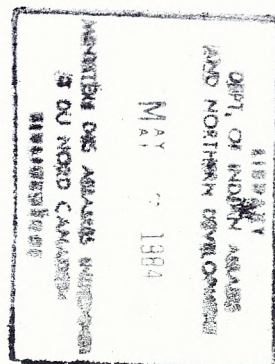 LIBRARY
DEPT. OF INDIAN AFFAIRS
AND NORTHERN DEVELOPMENT
MAY 1984
MINISTÈRE DES AFFAIRES INDIENNES
ET DU NORD CANADIEN